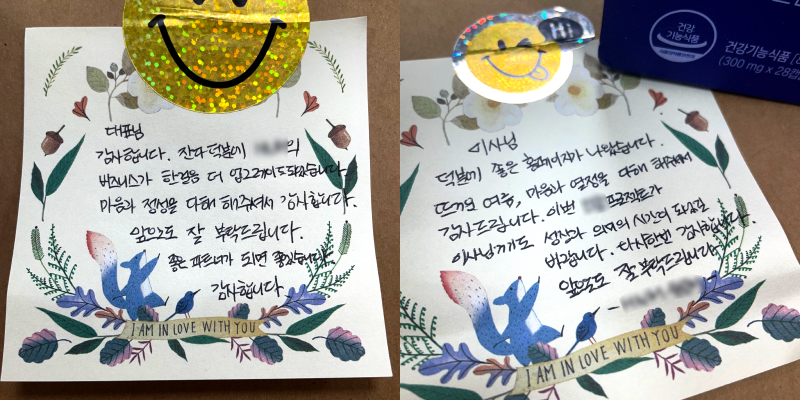 대표님
감사합니다. 잔다덕분에 의
버즈니스가 한걸음 더 업그레이드되었습니다.
마음과 정성을 다해 해주셔서 감사합니다.
앞으로도 잘 부탁드립니다.
좋은 파트너가 되면 좋겠습니다.
감사합니다
I AM IN LOVE WITH YOU
Hi
건강
기능식품
건강기능식품
(300 mg × 28캡
이사님
덕분에 좋은 홈페이지가 나왔습니다.
뜨거운 여름, 마음과 열정을 다해 해주셔서
감사드립니다. 이번 프로젝트가
이사님께도 성장과 의미의 시간이 되셨길
바랍니다. 다시한번 감사합니다.
앞으로도 잘 부탁드립니다
I AM IN LOVE WITH YOU